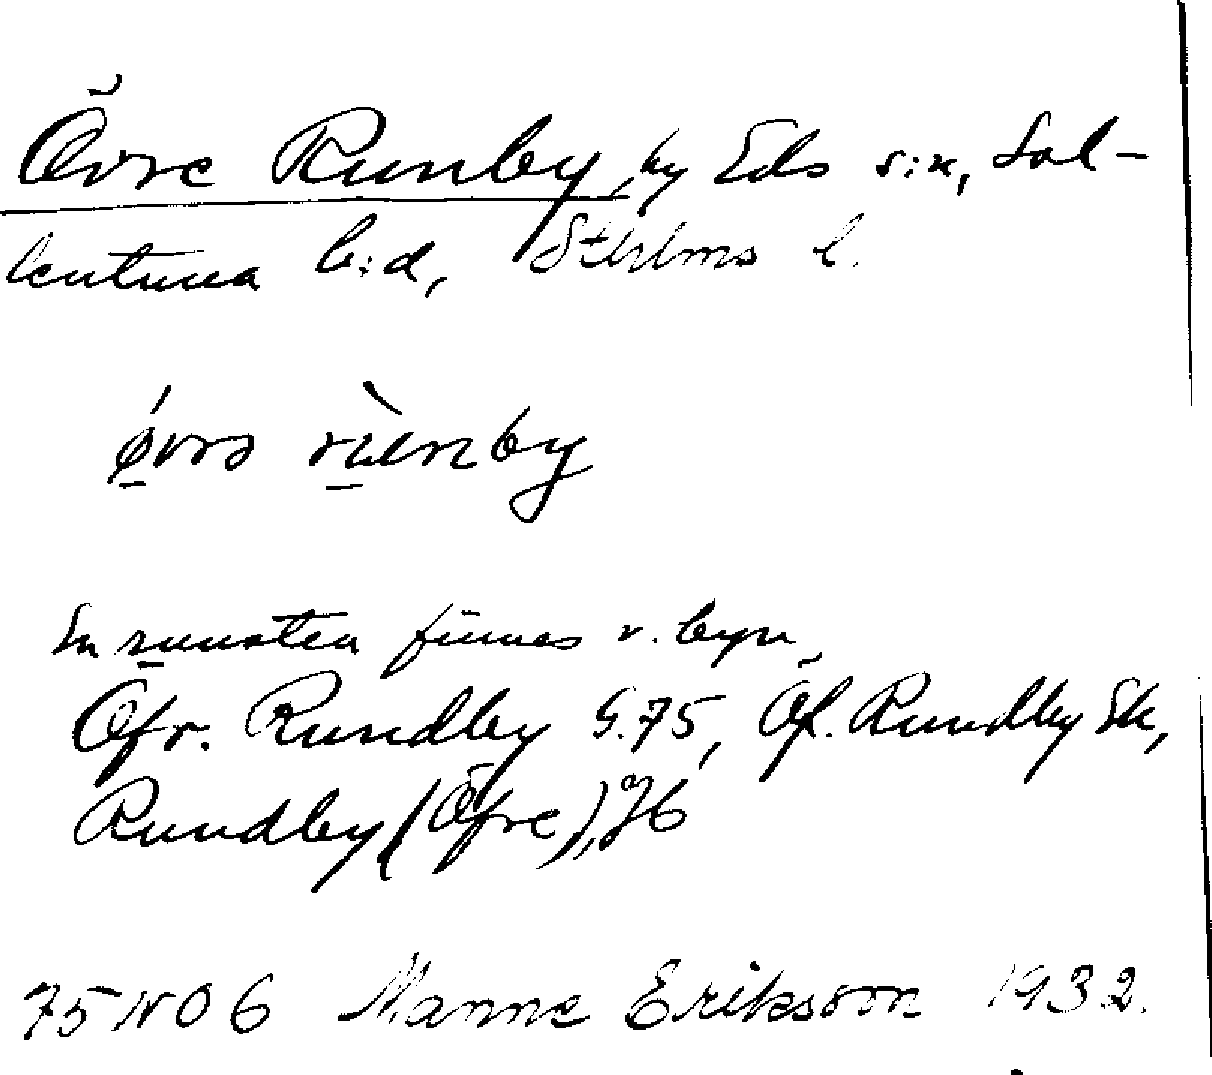 Övre Runby, by Eds s:n, Sol-
lentuna h:d, Sthlms l.
ǿvrə rùnby
En runsten finnes v. byn,
Öfr. Rundby G.75, Öf. Rundby Sk,
Rundby (Öfre), Jb
75 NO 6 Manne Eriksson 1932.